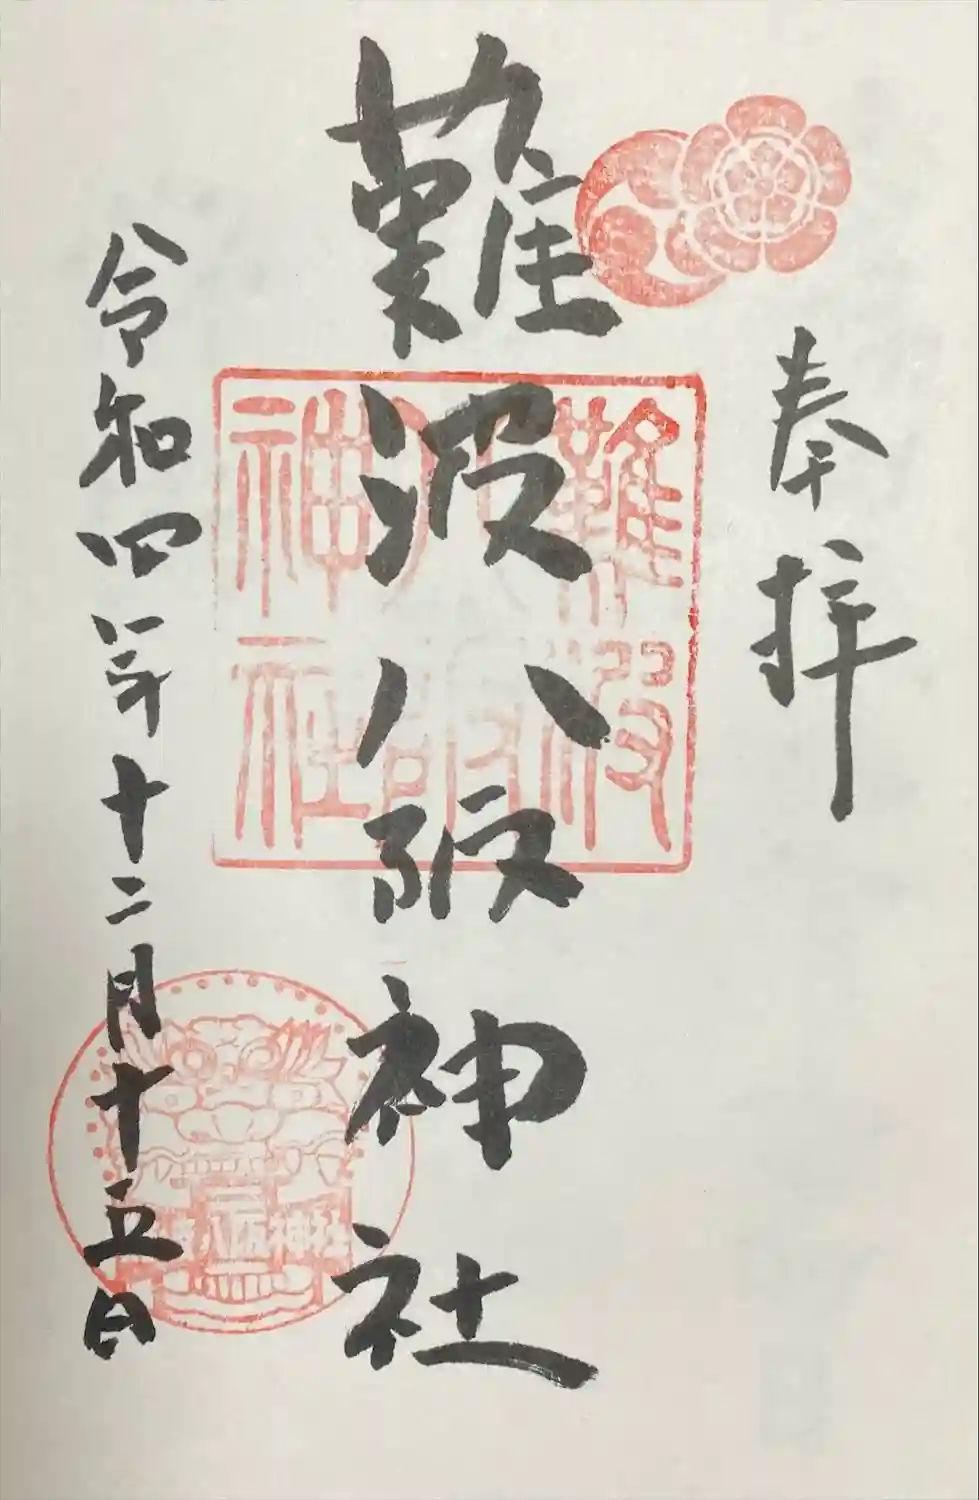 奉拝
難波八阪神社
難波八阪神社
令和四年十二月十五日
難波八阪神社